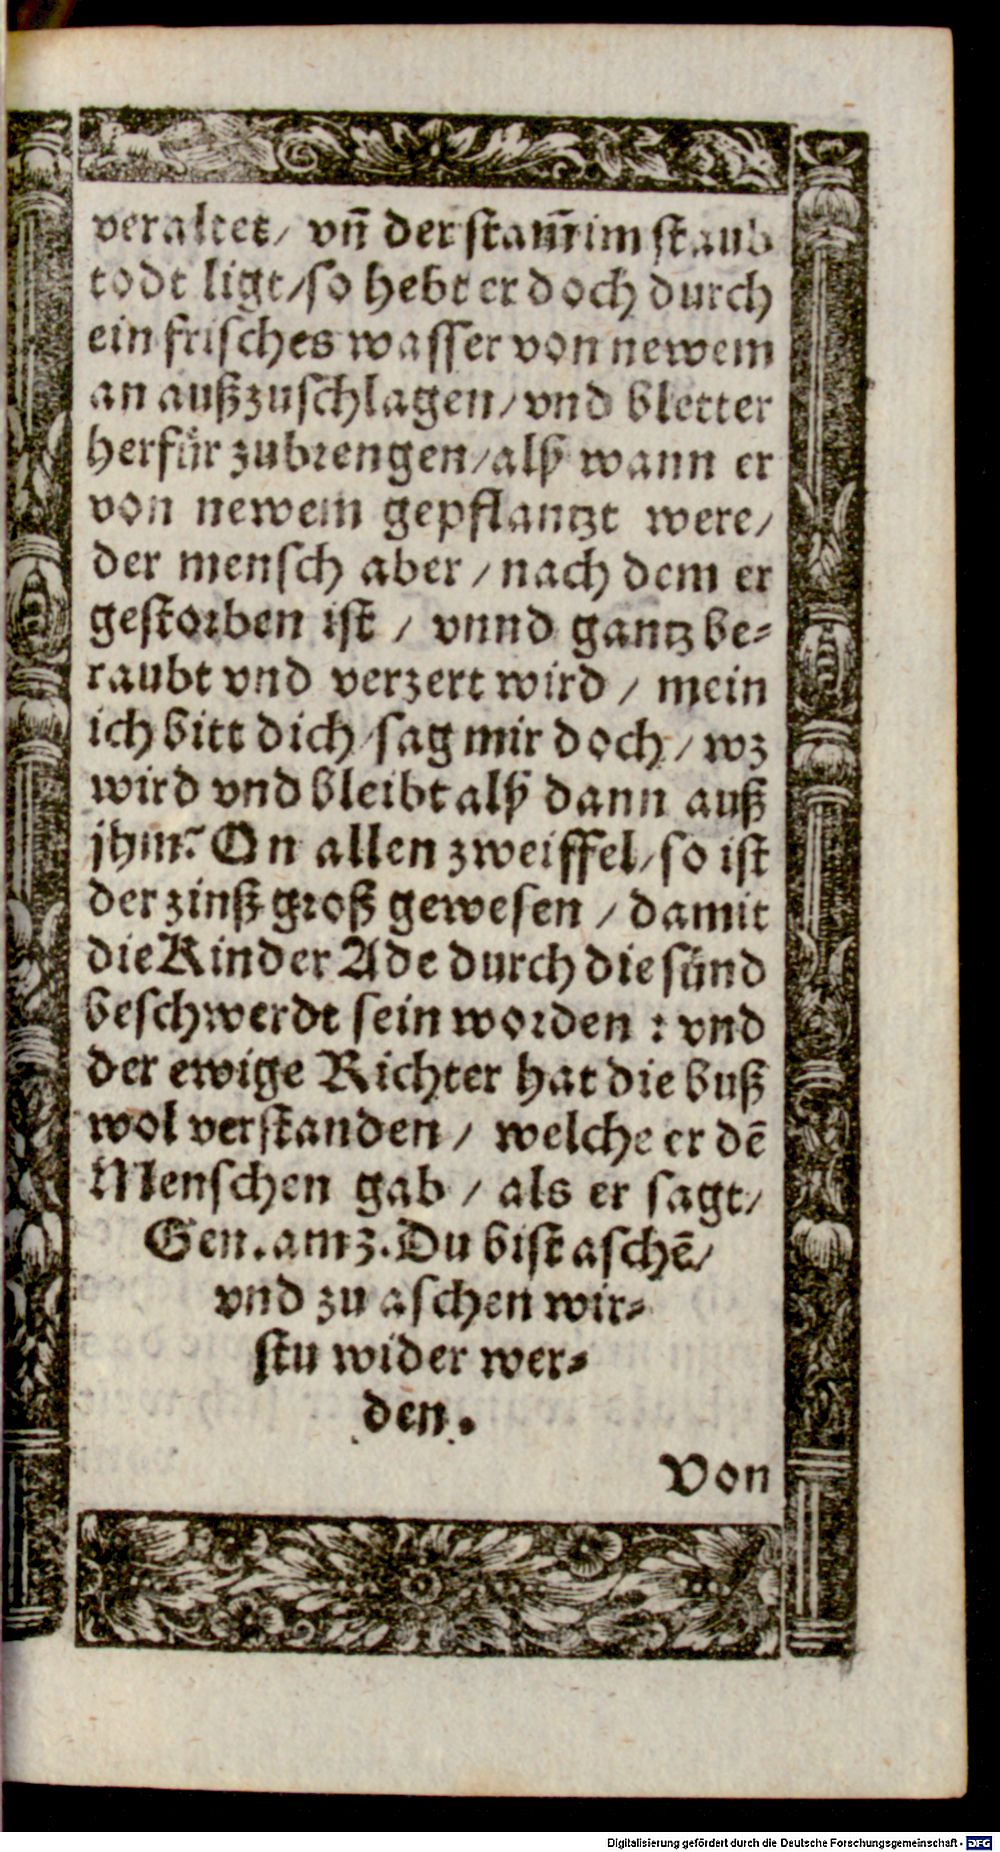 veraltet/ vñ der stam̃ im staub
todt ligt/so hebt er doch durch
ein frisches wasser von newem
an außzuschlagen/vnd bletter
herfür zubrengen/alß wann er
von newem gepflantzt were/
der mensch aber/nach dem er
gestorben ist / vnnd gantz be⸗
raubt vnd verzert wird / mein
ich bitt dich/sag mir doch/ wz
wird vnd bleibt alß dann auß
jhm? On allen zweiffel/so ist
der zinß groß gewesen / damit
die Kinder Ade durch die sünd
beschwerdt sein worden : vnd
der ewige Richter hat die buß
wol verstanden/ welche er dē
Menschen gab / als er sagt/
Gen. am 3. Du bist aschē/
vnd zu aschen wir⸗
stu wider wer⸗
den.
Von
Digitalisierung gefördert durch die Deutsche Forschungsgemeinschaft - DFG